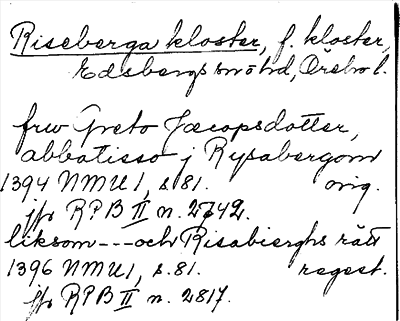 Riseberga kloster, f. kloster,
Edsbergs sn o hd, Örebro l.
frw Greto Jæcopsdotter,
abbatisso j Rysabergom
1394 NMU 1, s. 81. orig.
jfr RPB II n. 2742.
liksom --- och Risabierghs rätt
1396 NMU 1, s. 81. regest.
jfr RPB II n. 2817.